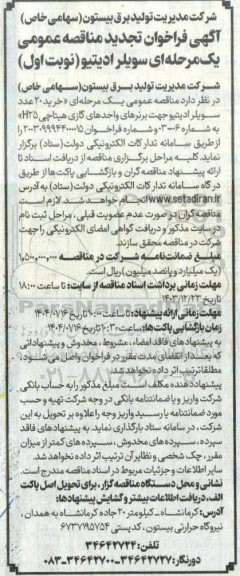 شرکت مدیریت تولید برق بیستون (سهامی خاص)
آگهی فراخوان تجدید مناقصه عمومی
یک مرحله‌ای سوپلر ادیتیو (نوبت اول)
شرکت مدیریت تولید برق بیستون (سهامی خاص)
در نظر دارد مناقصه عمومی یک مرحله‌ای «خرید ۲۰ عدد
سوپلر ادیتیو جهت برنرهای واحدهای گازی هیتاچی H25»
به شماره ۰۳-۰۰۶ و شماره فراخوان ۲۰۰۳۰۹۹۹۴۴۰۰۰۰۱۵ را
از طریق سامانه تدارکات الکترونیکی دولت (ستاد) برگزار
نماید. کلیه مراحل برگزاری مناقصه از دریافت اسناد تا
ارائه پیشنهاد مناقصه‌گران و بازگشایی پاکت‌ها از طریق
درگاه سامانه تدارکات الکترونیکی دولت (ستاد) به آدرس
www.setadiran.ir انجام خواهد شد. لازم است
مناقصه‌گران در صورت عدم عضویت قبلی، مراحل ثبت نام
در سایت مذکور و دریافت گواهی امضای الکترونیکی را جهت
شرکت در مناقصه محقق سازند.
مبلغ ضمانت‌نامه شرکت در مناقصه ۱،۵۰۰،۰۰۰،۰۰۰
(یک میلیارد و پانصد میلیون) ریال است.
مهلت زمانی برداشت اسناد مناقصه از سایت: تا ساعت ۱۸:۰۰
تاریخ ۱۴۰۳/۱۲/۲۳
مهلت زمانی ارائه پیشنهاد: تا ساعت ۱۰:۰۰ تاریخ ۱۴۰۴/۰۱/۱۶
زمان بازگشایی پاکت‌ها: ساعت ۱۰:۳۰ تاریخ ۱۴۰۴/۰۱/۱۶
به پیشنهادهای فاقد امضاء، مشروط، مخدوش و پیشنهاداتی
که بعد از انقضای مدت مقرر در فراخوان واصل می‌شود،
مطلقا ترتیب اثر داده نخواهد شد.
پیشنهاد دهنده مکلف است مبلغ مذکور را به حساب بانکی
شرکت واریز و یا ضمانتنامه بانکی در وجه شرکت تهیه و حسب
مورد ضمانتنامه یا رسید واریز وجه را علاوه بر تحویل به این
شرکت، در سامانه ستاد بارگذاری نماید. به پیشنهادهای فاقد
سپرده، سپرده‌های مخدوش، سپرده‌های کمتر از میزان
مقرر، چک شخصی و نظایر آن ترتیب اثر داده نخواهد شد.
سایر اطلاعات و جزئیات مربوط در اسناد مناقصه مندرج است.
نشانی و محل دستگاه مناقصه گزار، برای تحویل اصل پاکت
الف، دریافت اطلاعات بیشتر و گشایش پیشنهادها:
آدرس: کرمانشاه - کیلومتر ۲۰ جاده کرمانشاه به همدان،
نیروگاه حرارتی بیستون، کدپستی ۶۷۳۷۱۹۵۷۵۴
تلفن: ۳۴۶۴۲۷۲۴
دورنگار: ۳۴۶۴۲۷۲۷-۳۴۶۴۲۷۰۰-۰۸۳